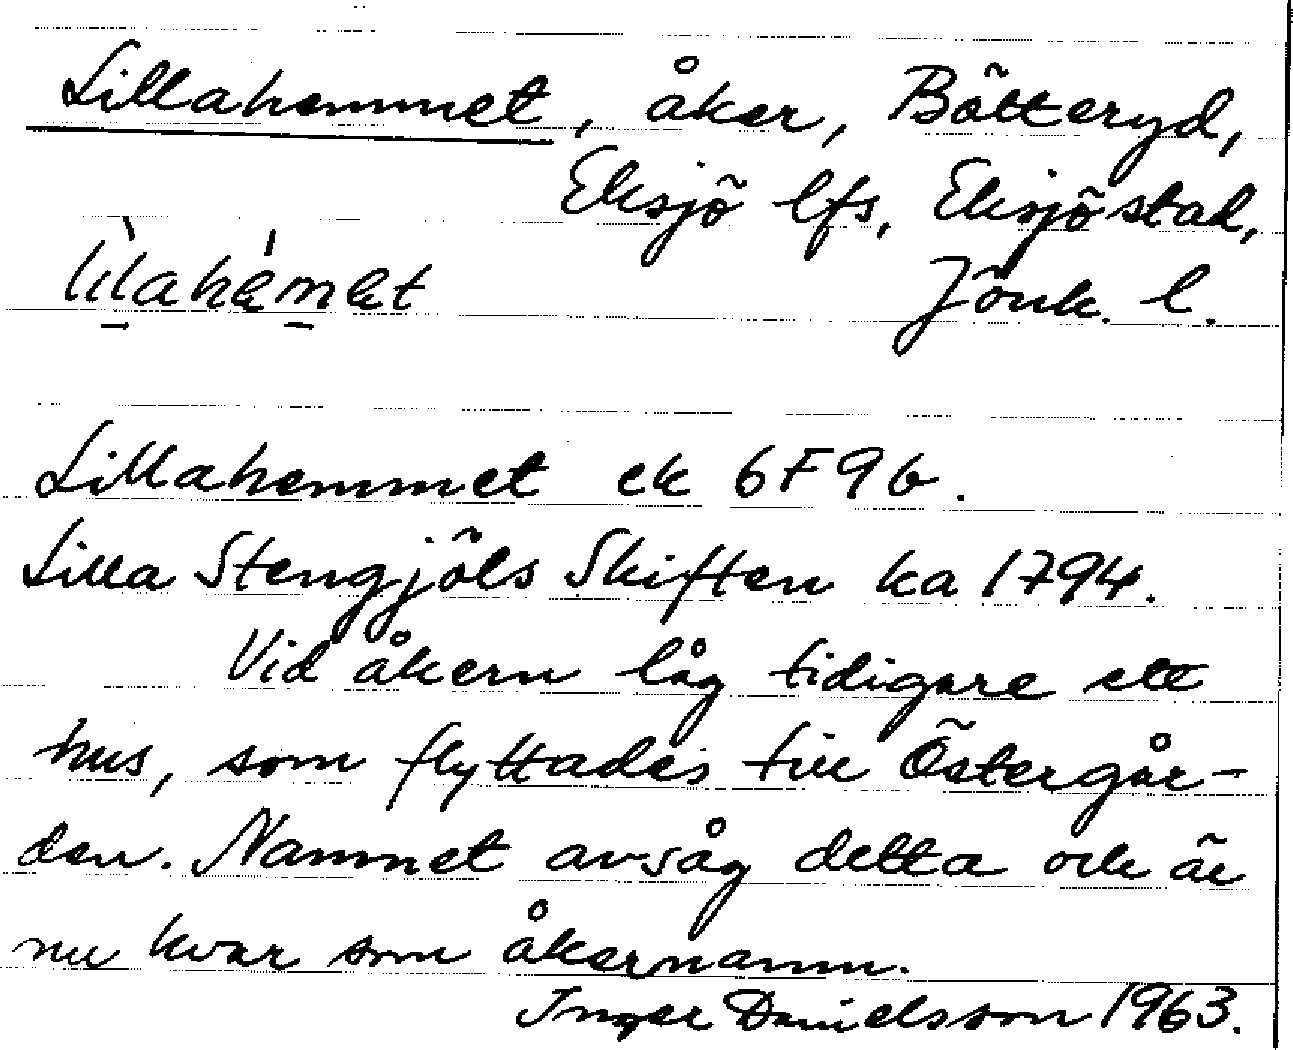 Lillahemmet, åker, Bötteryd,
Eksjö lfs, Eksjö stad,
lìl̠ahém̠et Jönk. l.
Lillahemmet ek 6F9b.
Lilla Stengjöls Skiften ka 1794.
Vid åkern låg tidigare ett
hus, som flyttades till Östergår-
den. Namnet avsåg detta och är
nu kvar som åkernamn.
Inger Danielsson 1963.